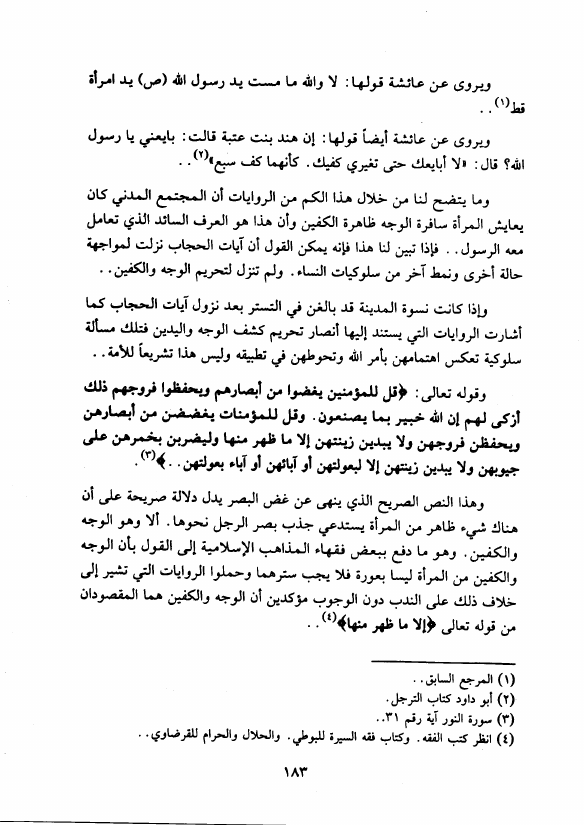 ويروى عن عائشة قولها: لا والله ما مست يد رسول الله (ص) يد امرأة
قط(١)..
ويروى عن عائشة أيضاً قولها: إن هند بنت عتبة قالت: بايعني يا رسول
الله؟ قال: «لا أبايعك حتى تغيري كفيك. كأنهما كف سبع»(٢)..
وما يتضح لنا من خلال هذا الكم من الروايات أن المجتمع المدني كان
يعايش المرأة سافرة الوجه ظاهرة الكفين وأن هذا هو العرف السائد الذي تعامل
معه الرسول.. فإذا تبين لنا هذا فإنه يمكن القول أن آيات الحجاب نزلت لمواجهة
حالة أخرى ونمط آخر من سلوكيات النساء. ولم تنزل لتحريم الوجه والكفين..
وإذا كانت نسوة المدينة قد بالغن في التستر بعد نزول آيات الحجاب كما
أشارت الروايات التي يستند إليها أنصار تحريم كشف الوجه واليدين فتلك مسألة
سلوكية تعكس اهتمامهن بأمر الله وتحوطهن في تطبيقه وليس هذا تشريعاً للأمة..
وقوله تعالى: ﴿قل للمؤمنين يغضوا من أبصارهم ويحفظوا فروجهم ذلك
أزكى لهم إن الله خبير بما يصنعون. وقل للمؤمنات يغضضن من أبصارهن
ويحفظن فروجهن ولا يبدين زينتهن إلا ما ظهر منها وليضربن بخمرهن على
جيوبهن ولا يبدين زينتهن إلا لبعولتهن أو آبائهن أو آباء بعولتهن..﴾(٣).
وهذا النص الصريح الذي ينهى عن غض البصر يدل دلالة صريحة على أن
هناك شيء ظاهر من المرأة يستدعي جذب بصر الرجل نحوها. ألا وهو الوجه
والكفين. وهو ما دفع ببعض فقهاء المذاهب الإسلامية إلى القول بأن الوجه
والكفين من المرأة ليسا بعورة فلا يجب سترهما وحملوا الروايات التي تشير إلى
خلاف ذلك على الندب دون الوجوب مؤكدين أن الوجه والكفين هما المقصودان
من قوله تعالى ﴿إلا ما ظهر منها﴾(٤)..
(١) المرجع السابق..
(٢) أبو داود كتاب الترجل.
(٣) سورة النور آية رقم ٣١..
(٤) انظر كتب الفقه. وكتاب فقه السيرة للبوطي. والحلال والحرام للقرضاوي..
١٨٣